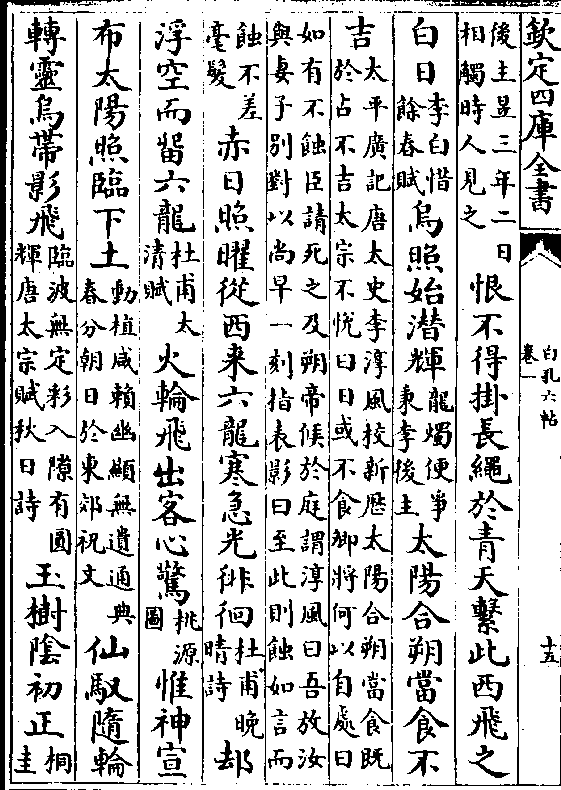 欽定四庫全書
白孔六帖
卷一
十五
後主昱三年二日
相觸時人見之
恨不得掛長繩於青天繫此西飛之
白日
李白惜
餘春賦
烏照始潛輝
龍燭便爭
秉李後主
太陽合朔當食不
吉
太平廣記唐太史李淳風校新厯太陽合朔當食既
於占不吉太宗不悅曰日或不食卿將何以自處曰
如有不蝕臣請死之及朔帝候於庭謂淳風曰吾放汝
與妻子别對以尚早一刻指表影曰至此則蝕如言而
蝕不差
毫髮
赤日照曜從西來六龍寒急光徘徊
杜甫晚
晴詩
却
浮空而留六龍
杜甫太
清賦
火輪飛出客心驚
桃源
圖
惟神宣
布太陽照臨下土
動植咸賴幽顯無遺通典
春分朝日於東郊祝文
仙馭隨輪
轉靈烏帶影飛
臨波無定彩入隙有圓
輝唐太宗賦秋日詩
玉樹陰初正
桐
圭